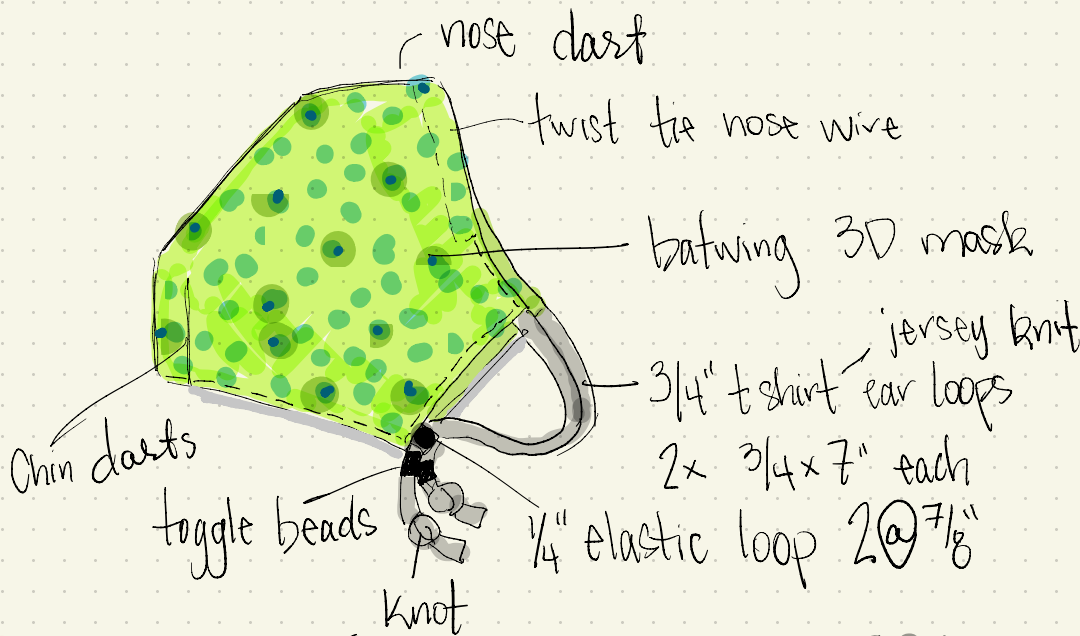 nose dart
twist tie nose wire
batwing 3D mask
jersey knit
3/4" t shirt ear loops
2x 3/4 x 7" each
Chin darts
toggle beads
1/4" elastic loop 2@ 7/8"
knot